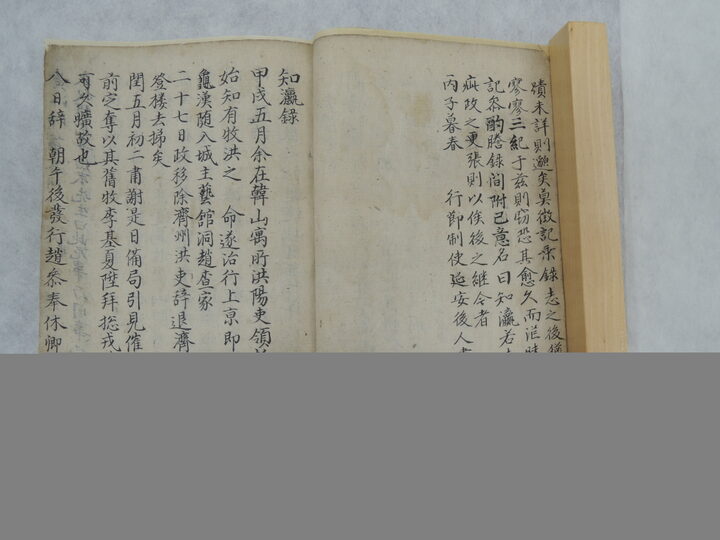 蹟未詳則邈矣莫徵記乘錄志之後
寥寥三紀于玆則窃恐其愈久而茫
記叅酌謄錄間附己意名曰知瀛
疵政之更張則以俟後之継令者
丙子暮春 行節制使延安後人
知瀛錄
甲戌五月余在韓山寓所洪陽吏領
始知有牧洪之 命遂治行上京即
龜渓随入城主藝館洞趙査家
二十七日政移除濟州洪吏辞退濟
登楼去掃矣
閏五月初二肅謝是日備局引見催
前之奪以其舊牧李基夏陞拜捴戎
可久曠故也
八日辞 朝午後發行趙叅奉休卿